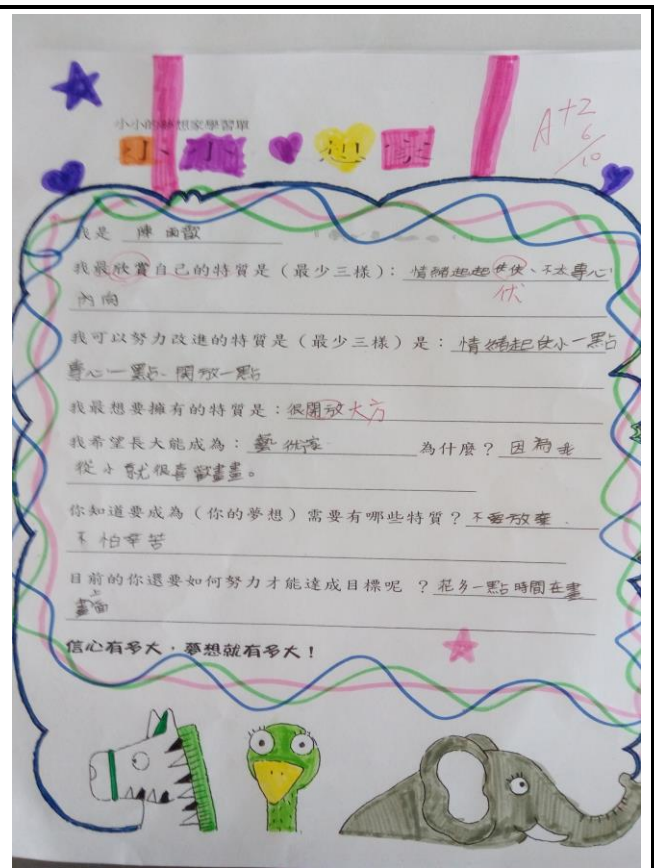 小小的夢想家學習單
小小 想家
A+2
6/10
我是 陳
我最欣賞自己的特質是(最少三樣): 情緒起起伕伕、不太專心
伏
內向
我可以努力改進的特質是(最少三樣)是: 情緒起伕小一點
專心一點、開放一點
我最想要擁有的特質是:很開放大方
我希望長大能成為: 藝術家 為什麼? 因為我
從小就很喜歡畫畫。
你知道要成為(你的夢想)需要有哪些特質? 不要放棄、
不怕辛苦
目前的你還要如何努力才能達成目標呢 ? 花多一點時間在畫
畫上面
信心有多大,夢想就有多大!